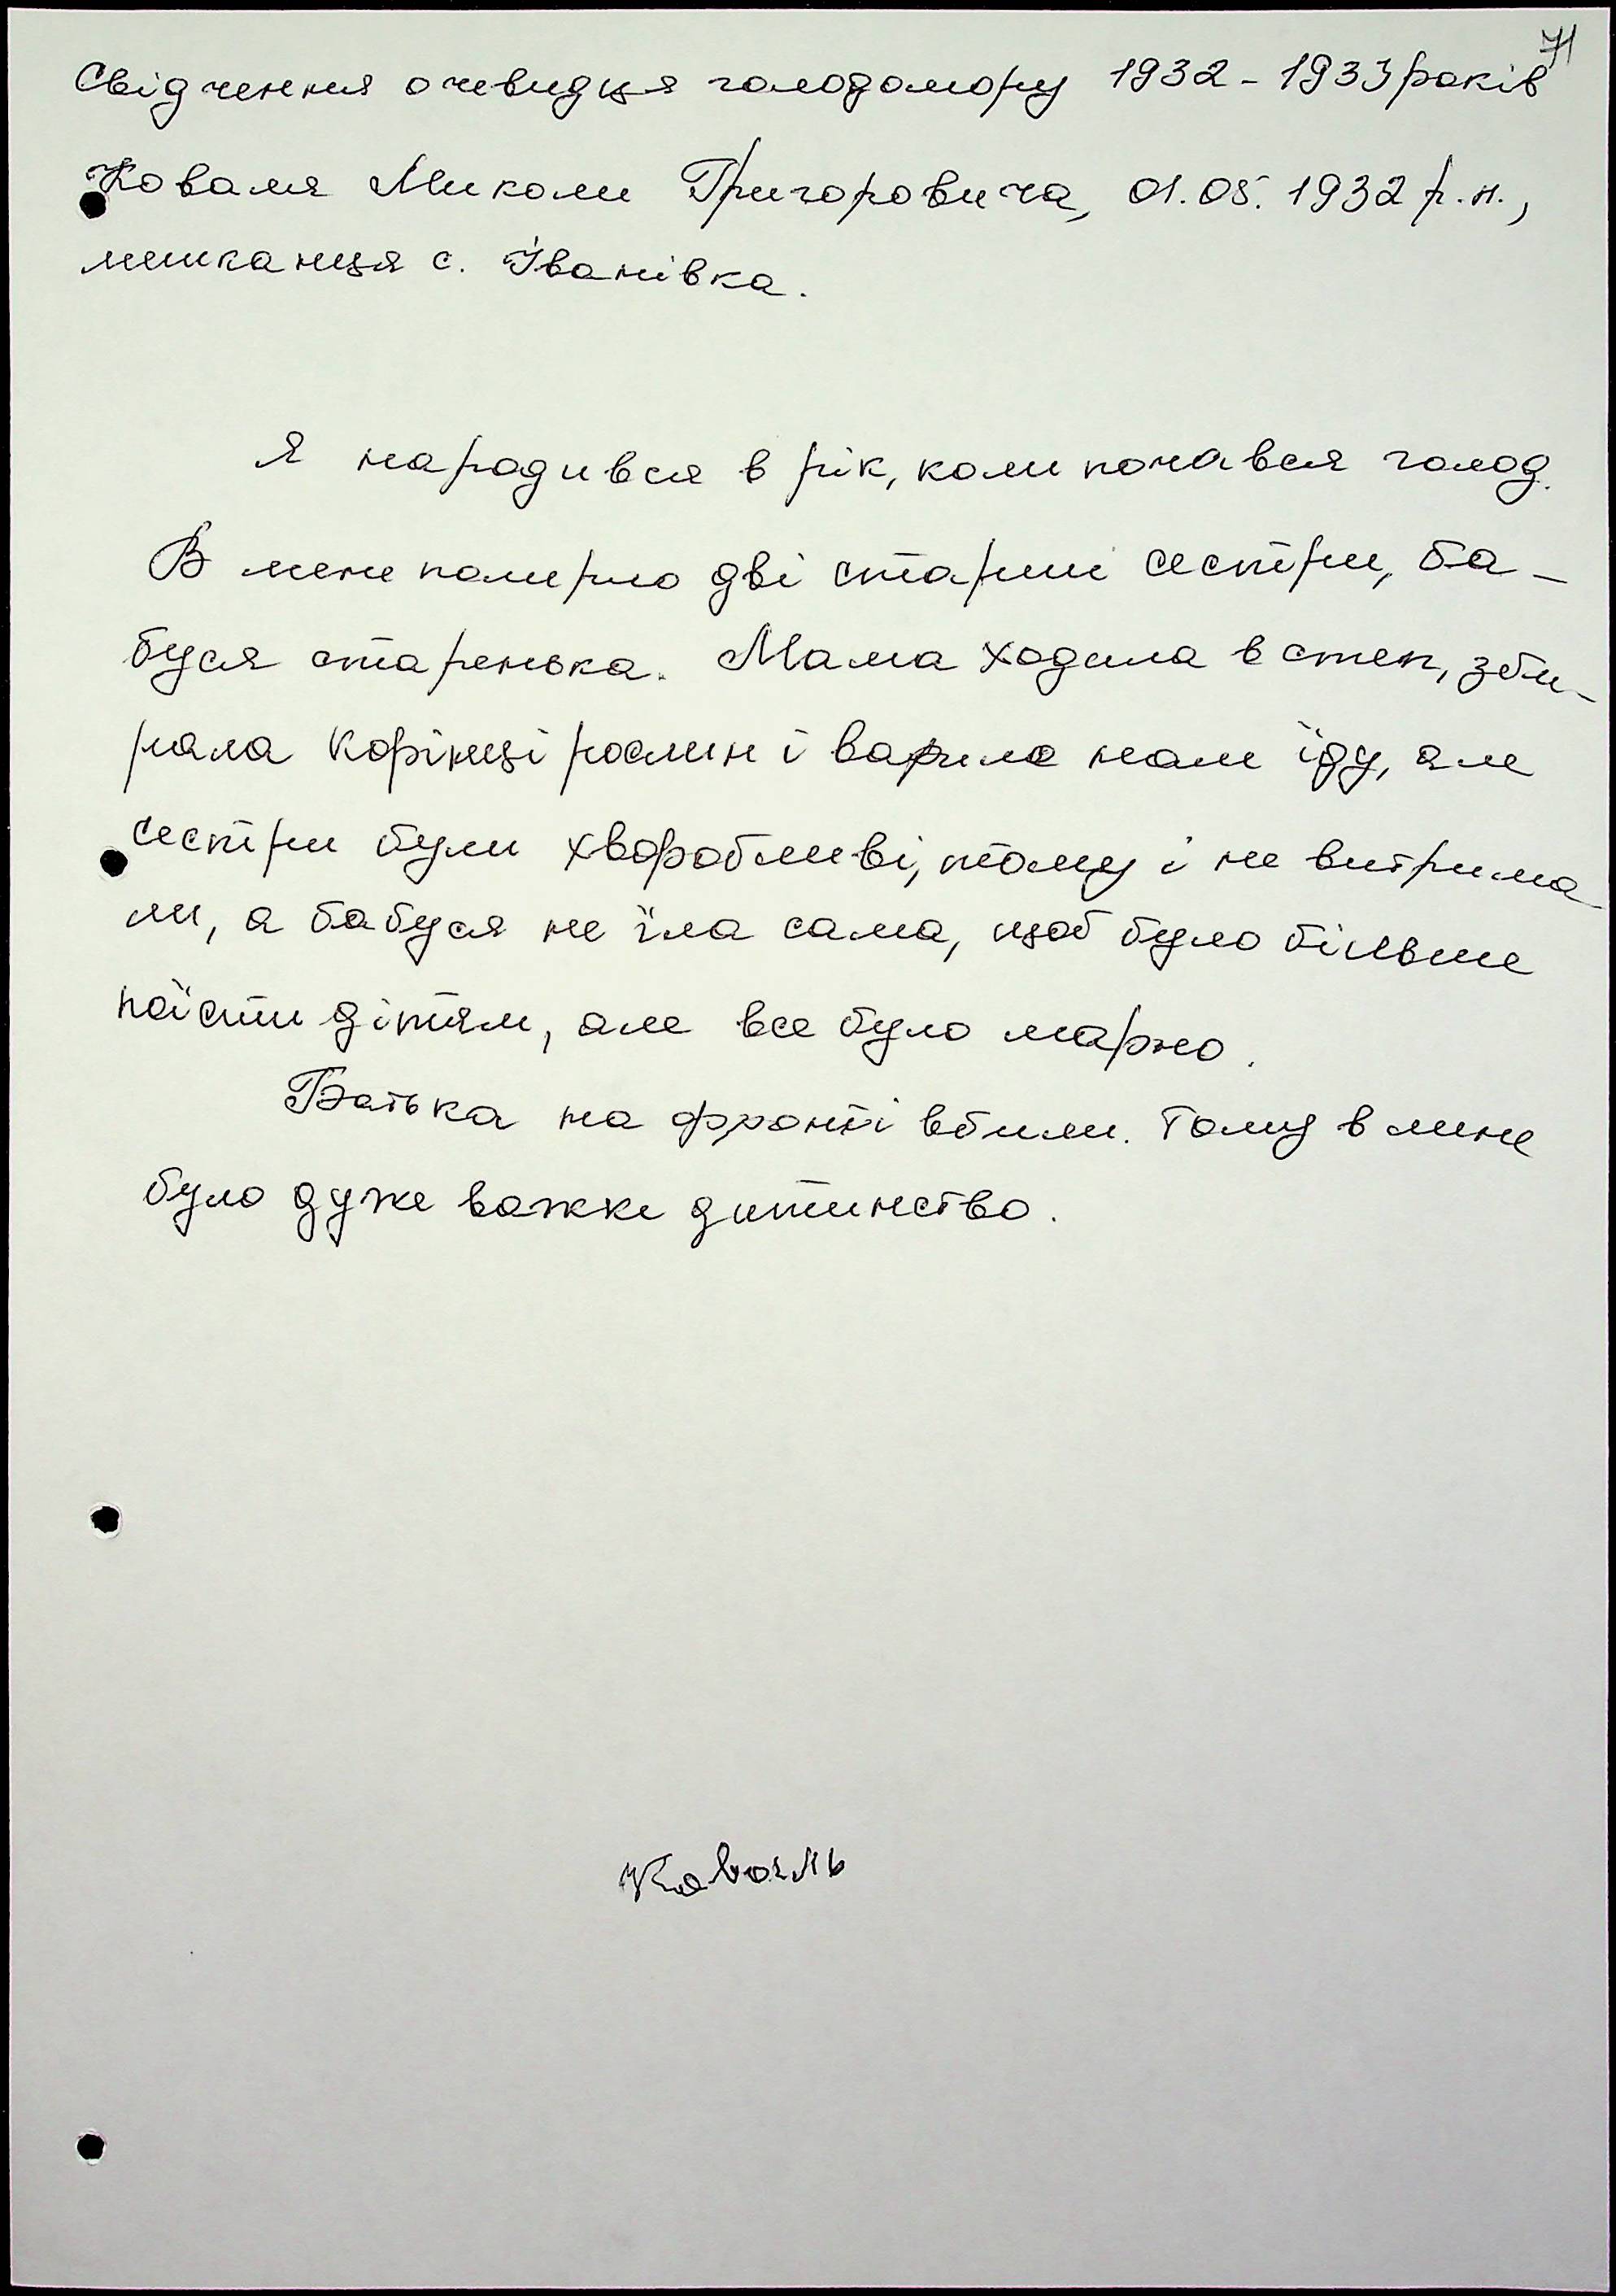 71
Свідчення очевидця голодомору 1932-1933 років
Коваля Миколи Григоровича, 01.05.1932 р.н.,
мешканця с. Іванівка.
Я народився в рік, коли почався голод.
В мене померло дві старші сестри, ба-
буся старенька. Мама ходила в степ, зби-
рала корінці рослин і варила нам їду, але
сестри були хворобливі, тому і не витрима-
ли, а бабуся не їла сама, щоб було більше
поїсти дітям, але все було марно.
Батька на фронті вбили. Тому в мене
було дуже важке дитинство.
Коваль